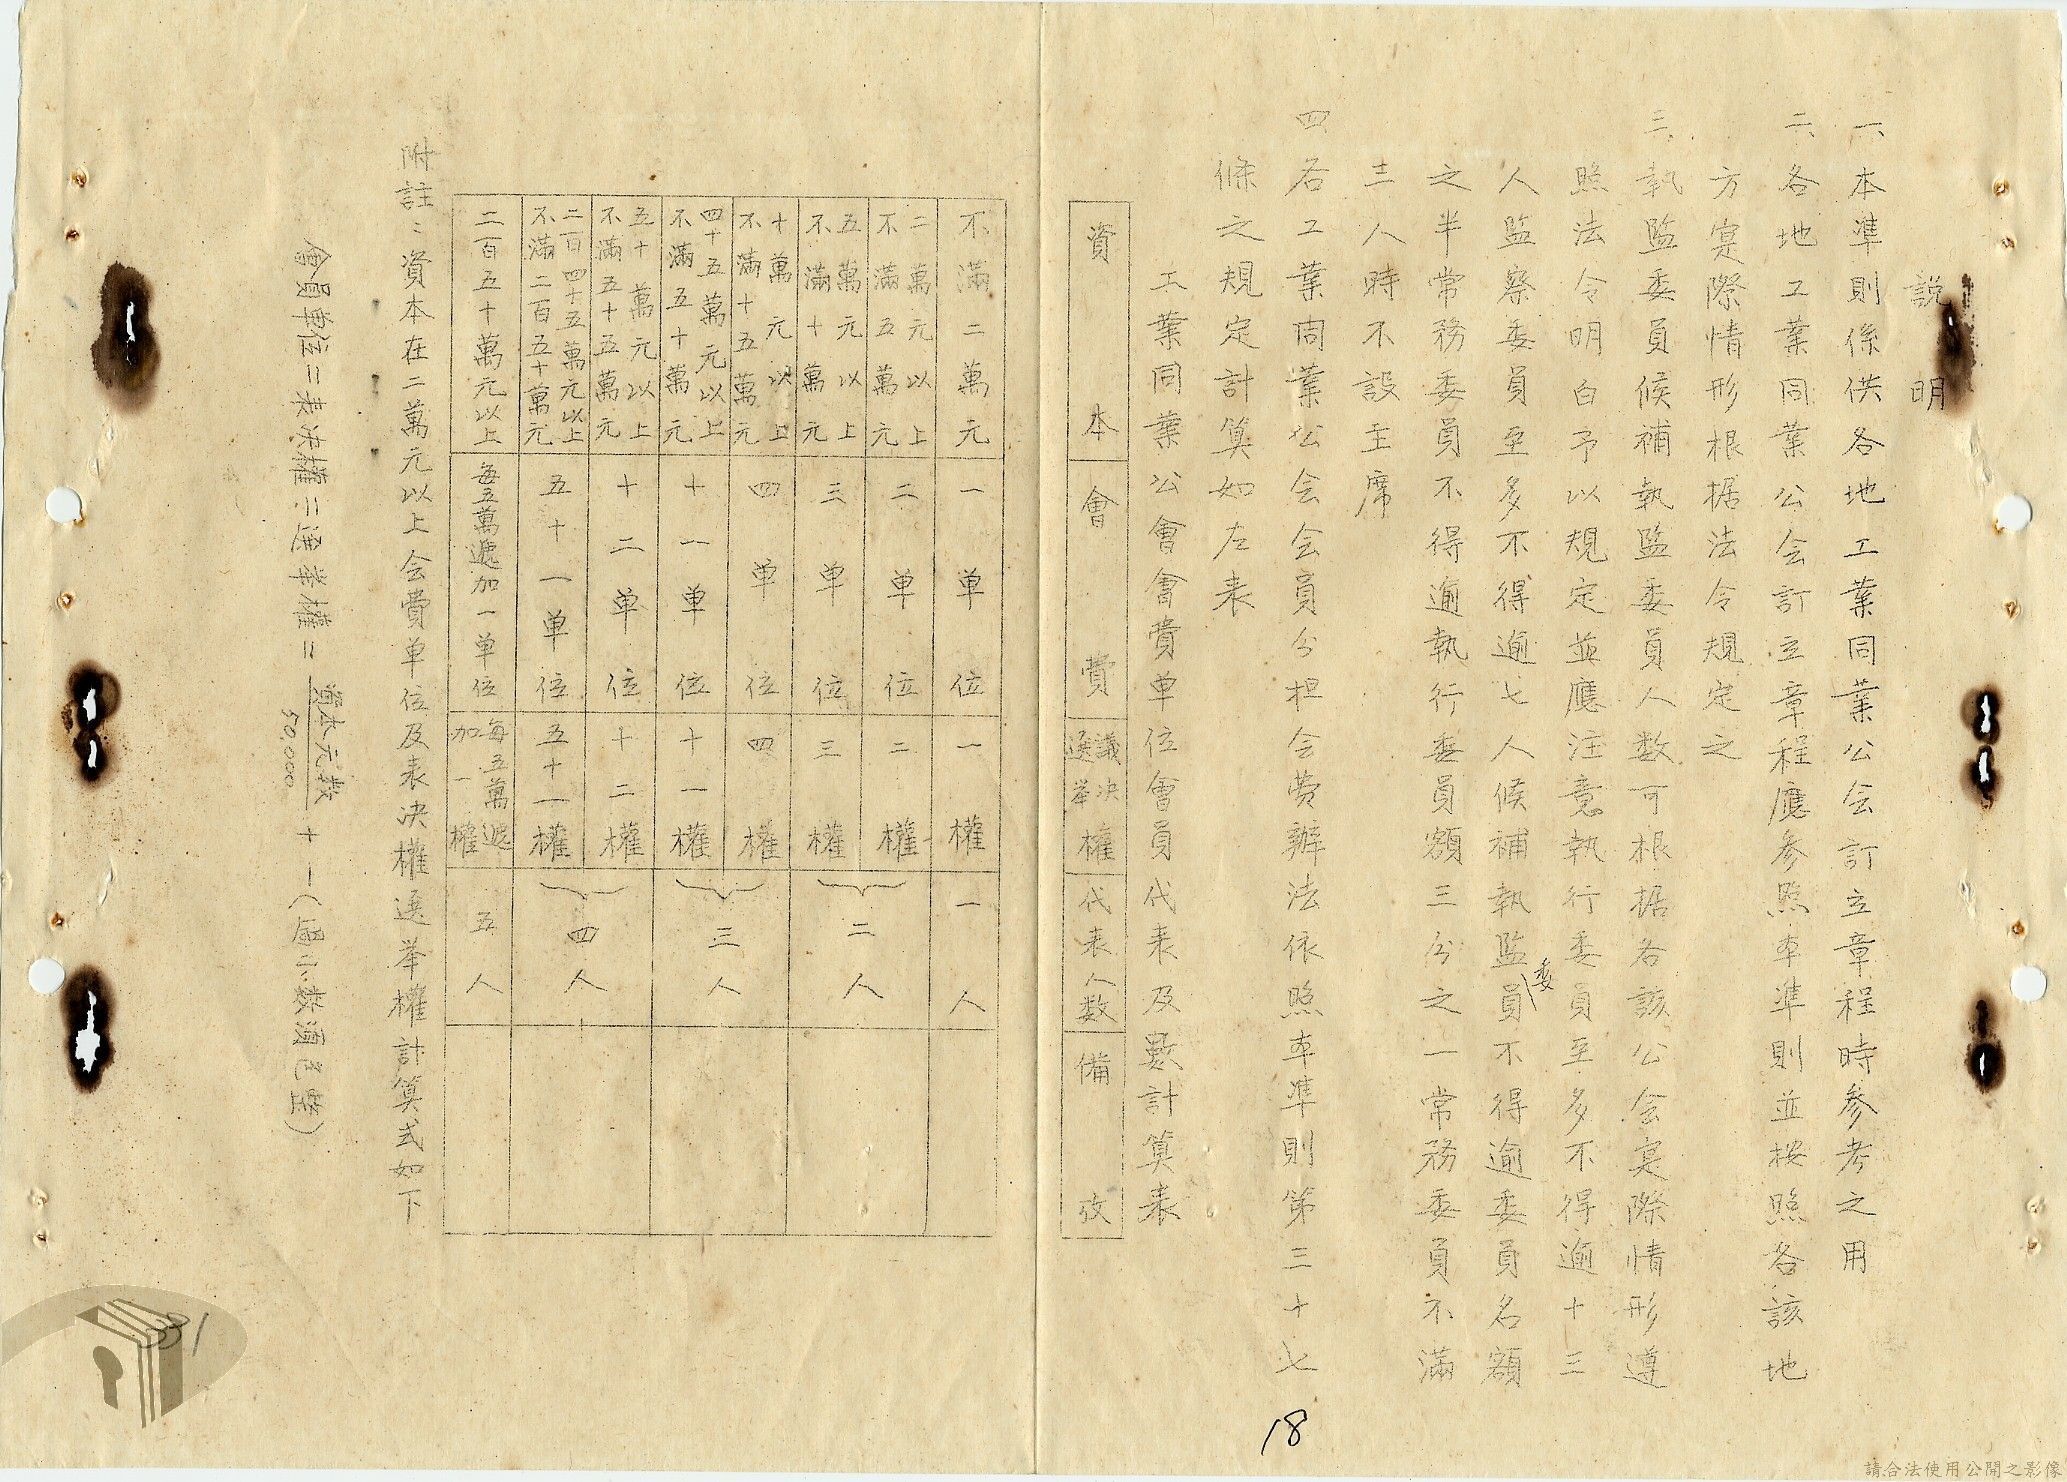 說明
一、本準則係供各地工業同業公会訂立章程時參考之用
二、各地工業同業公会訂立章程應參照本準則並按照各該地
方寔際情形根据法令規定之
三、執監委員候補執監委員人数可根据各該公会寔際情形遵
照法令明白予以規定並應注意執行委員至多不得逾十三
人監察委員至多不得逾七人候補執監委員不得逾委員名額
之半常務委員不得逾執行委員額三分之一常務委員不滿
三人時不設主席
四、各工業同業公会会員分担会费辦法依照本準則第三十七
條之規定計算如左表
工業同業公會會費單位會員代表及數計算表
資本 會費 議決選举權 代表人数 備攷
不滿二萬元 一单位 一權 一人
二萬元以上不滿五萬元 二单位 二權 二人
五萬元以上不滿十萬元 三单位 三權
十萬元以上不滿十五萬元 四单位 四權 三人
四十五萬元以上不滿五十萬元 十一单位 十一權
五十萬元以上不滿五十五萬元 十二单位 十二權 四人
二百四十五萬元以上不滿二百五十萬元 五十一单位 五十一權
二百五十萬元以上 每五萬遞加一单位 每五萬遞加一權 五人
附註、資本在二萬元以上会費单位及表决權选举權計算式如下
會員单位=表决權=選举權= 資本元数/50,000 十一(遇小数須已整)
18
331
請合法使用公開之影像